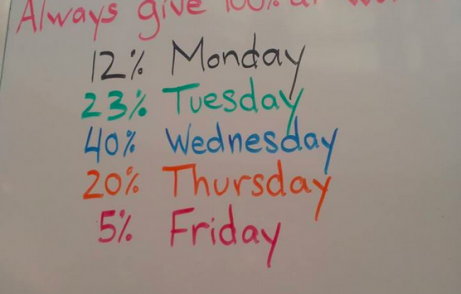 Always give 100% at
12% Monday
23% Tuesday
40% Wednesday
20% Thursday
5% Friday